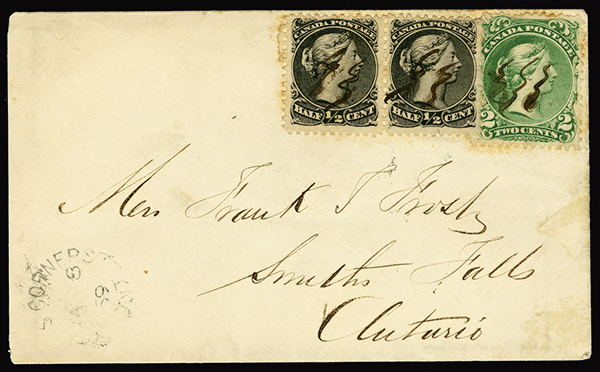 CANADA POSTAGE CANADA POSTAGE CANADA POSTAGE
HALF 1/2 CENT HALF 1/2 CENT 2 TWO CENTS 2
Mrs Frank T Frost
Smiths Falls
Ontario
CORNERS